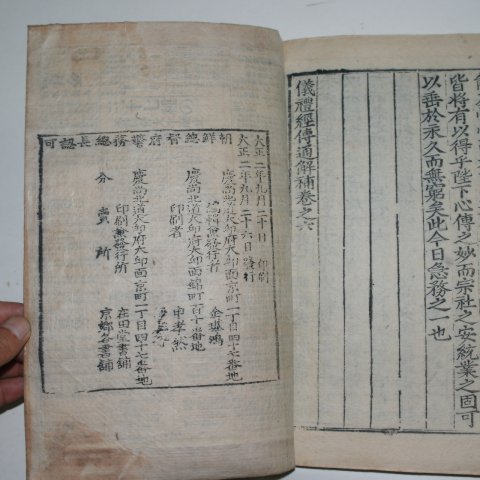 皆將有以得乎陛下心傳之妙而宗社之安統業之固可
以垂於永久而無窮矣此今日急務之一也
儀禮經傳通解補卷之六
大正二年九月二十日 印刷
大正二年九月二十六日 發行
朝鮮總督府警務總長認可
慶尚北道大邱府大邱面京町一丁目四十六番地
編輯兼發行者
慶尚北道大邱府大邱面錦町百十番地
印刷者 申孝然
慶尚北道大邱府大邱面京町一丁目四十七番地
印刷兼發行所 在田堂書鋪
分賣所 京鄉各書鋪